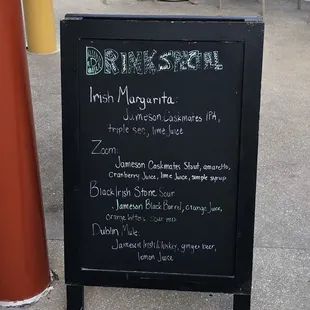 DRINK SPECIAL
Irish Margarita:
Jameson Caskmates IPA,
triple sec, lime juice
Zoom:
Jameson Caskmates Stout, amaretto,
cranberry Juice, lime Juice, simple syrup
Black Irish Stone Sour
Jameson Black Barrel, orange Juice,
orange bitters, sour mix
Dublin Mule
Jameson Irish Whiskey, ginger beer,
lemon Juice